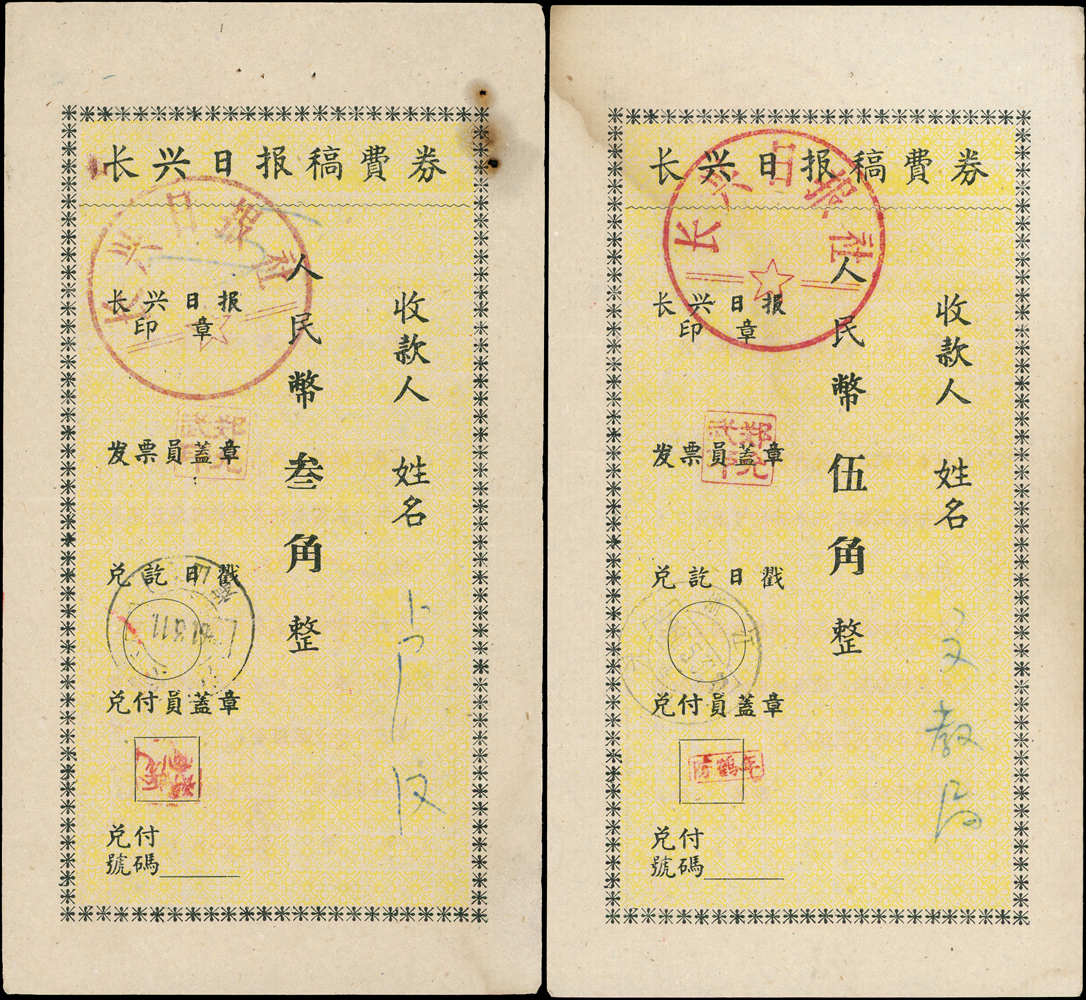 长兴日报稿費券
长兴日报社
收款人 姓名
人民幣叁角整
长兴日报
印章
发票員蓋章
兑訖日戳
兑付員蓋章
兑付
號碼
长兴日报稿費券
长兴日报社
收款人 姓名
文教局
人民幣伍角整
长兴日报
印章
发票員蓋章
兑訖日戳
兑付員蓋章
兑付
號碼